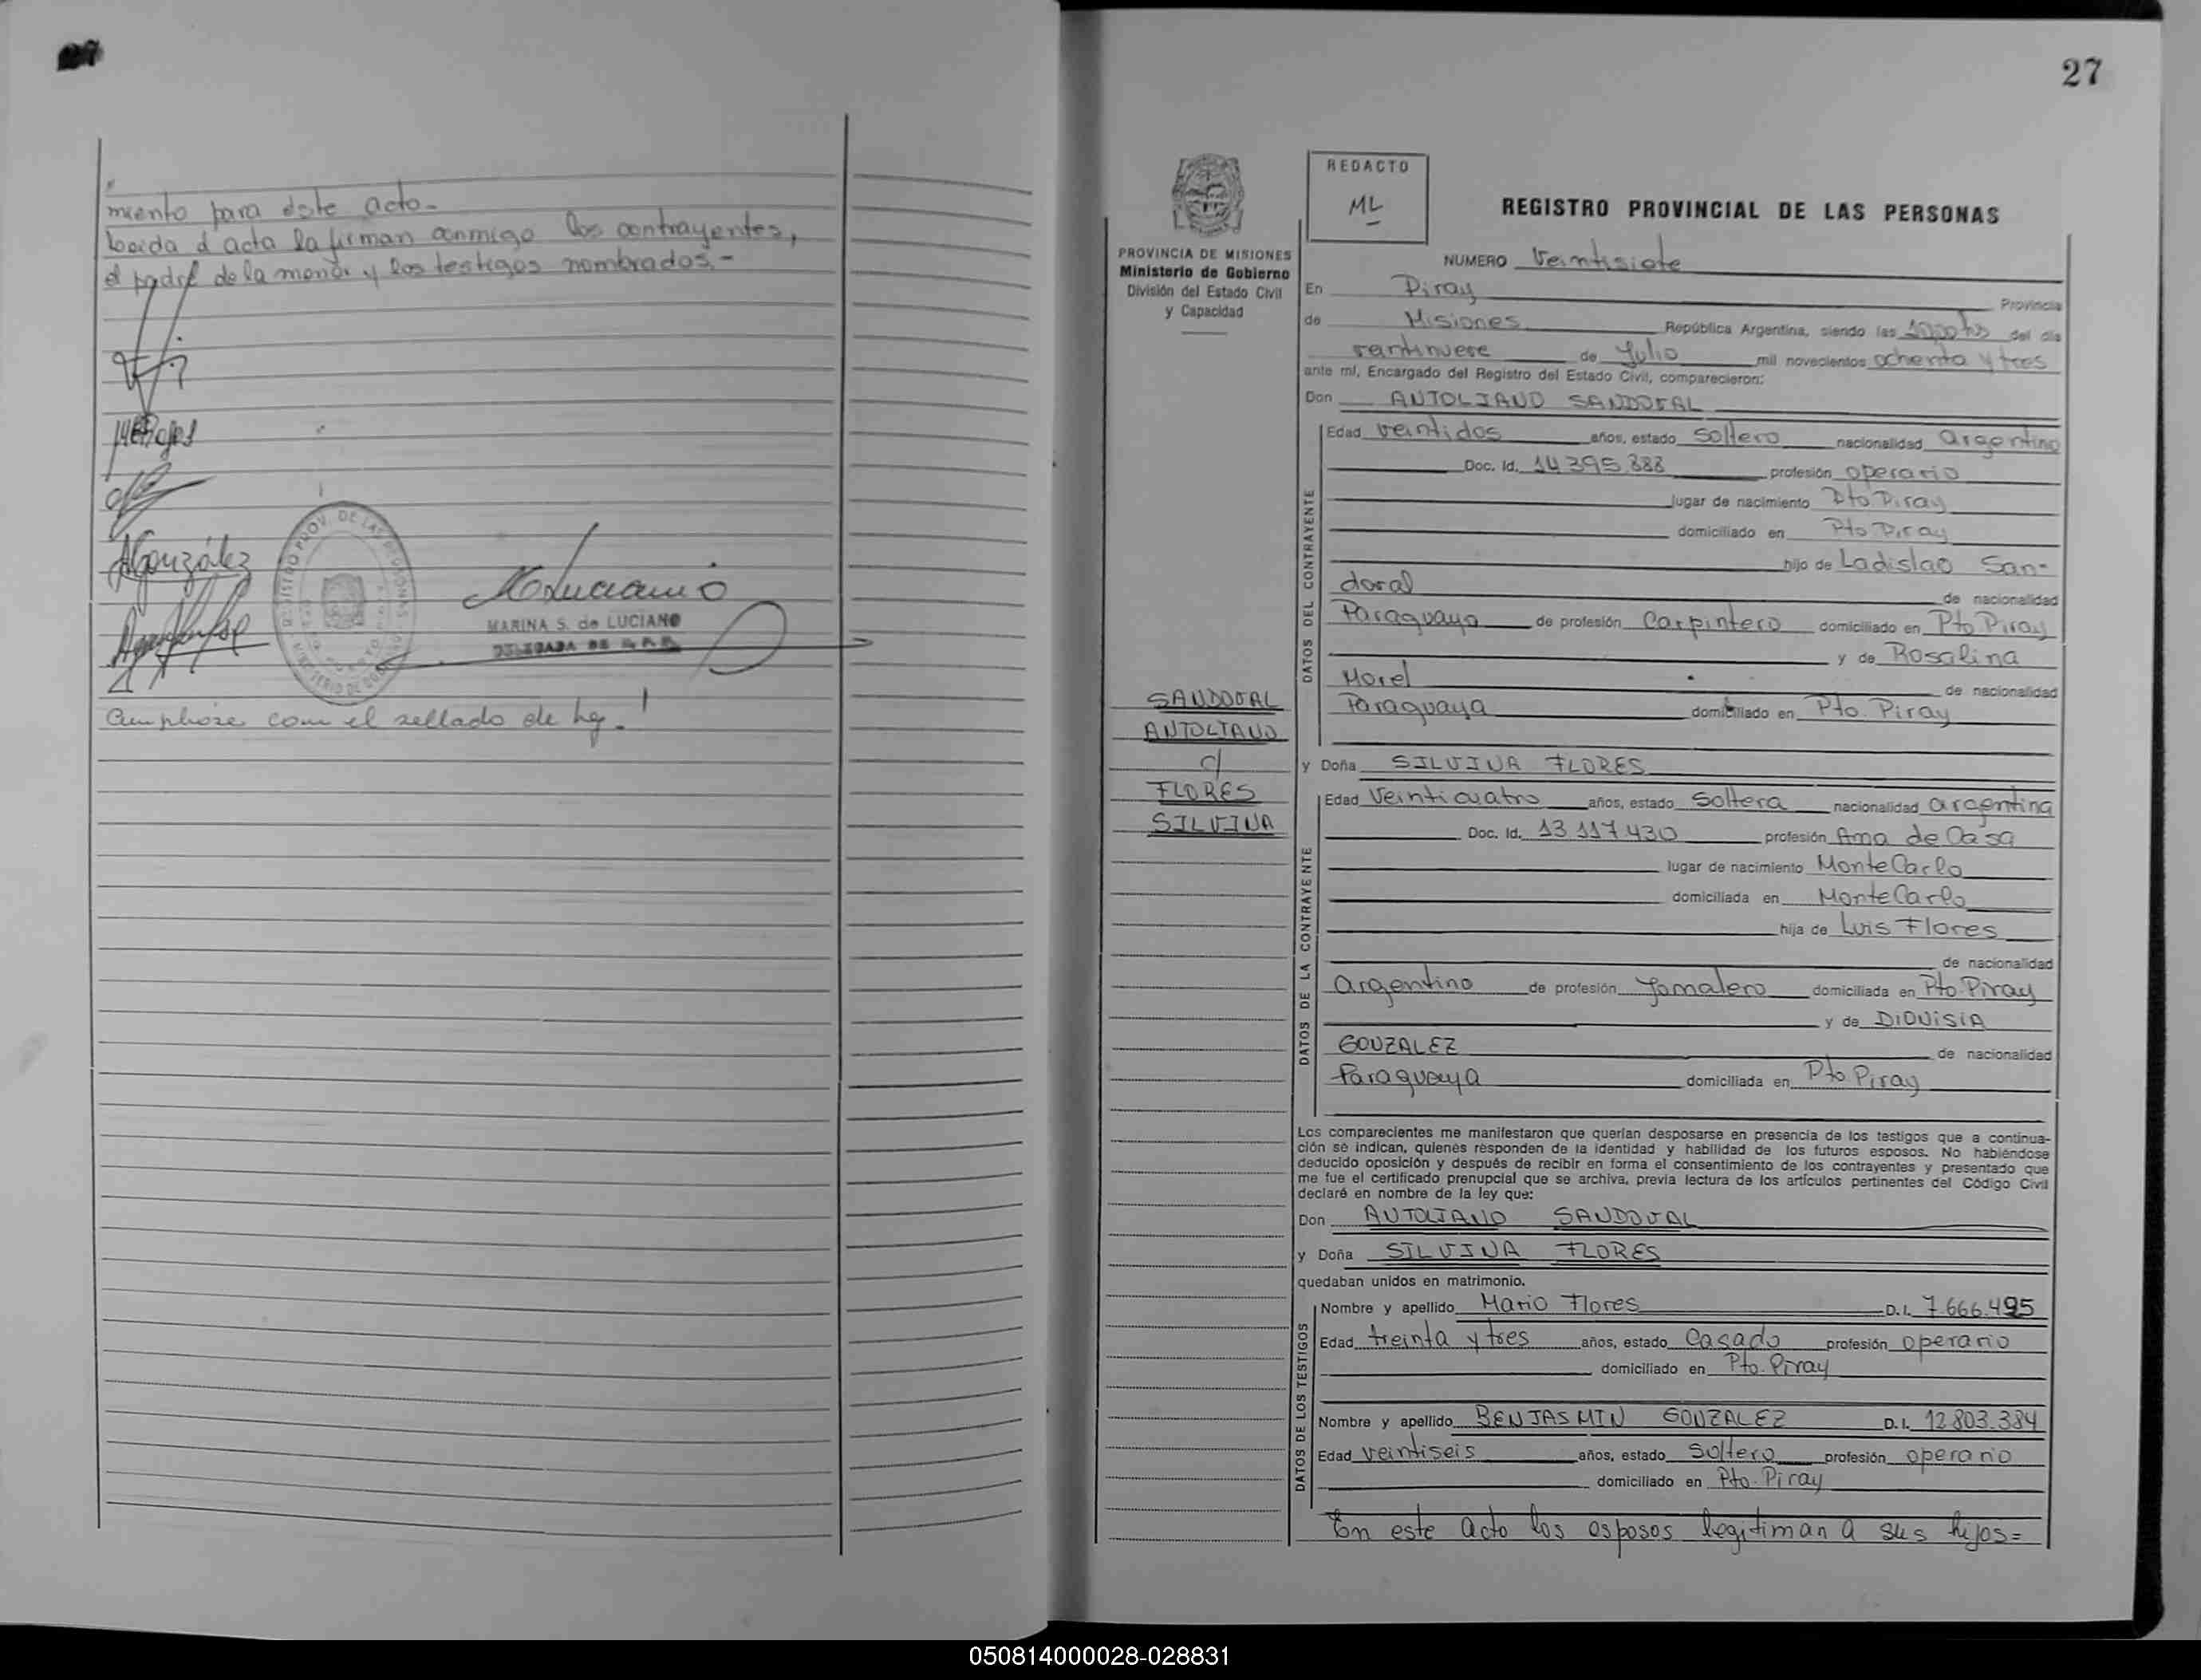 miento para este acto-
Leida el acta la firman conmigo los contrayentes,
el padre de la menor y los testigos nombrados.-
AGonzález
MLuciano
MARINA S. de LUCIANO
DELEGADA DE
REGISTRO PROV. DE LAS PERSONAS
Cumplióse con el sellado de ley.
27
REDACTO
ML
REGISTRO PROVINCIAL DE LAS PERSONAS
PROVINCIA DE MISIONES
Ministerio de Gobierno
División del Estado Civil
y Capacidad
NUMERO Veintisiete
En Piray Provincia
de Misiones República Argentina, siendo las 10,00 hs del día
veintinueve de Julio mil novecientos ochenta y tres
ante mí, Encargado del Registro del Estado Civil, comparecieron:
Don ANTOLIANO SANDOVAL
DATOS DEL CONTRAYENTE
Edad veintidos años, estado soltero nacionalidad argentino
Doc. Id. 14.395.888 profesión operario
lugar de nacimiento Pto Piray
domiciliado en Pto Piray
hijo de Ladislao San-
doval de nacionalidad
Paraguayo de profesión Carpintero domiciliado en Pto Piray
y de Rosalina
Morel de nacionalidad
Paraguaya domiciliado en Pto. Piray
SANDOVAL
ANTOLIANO
c/
FLORES
SILVINA
y Doña SILVINA FLORES
DATOS DE LA CONTRAYENTE
Edad Veinticuatro años, estado soltera nacionalidad argentina
Doc. Id. 13.117.430 profesión Ama de Casa
lugar de nacimiento MonteCarlo
domiciliada en MonteCarlo
hija de Luis Flores
de nacionalidad
argentino de profesión Jornalero domiciliada en Pto. Piray
y de DIONISIA
GONZALEZ de nacionalidad
Paraguaya domiciliada en Pto Piray
Los comparecientes me manifestaron que querían desposarse en presencia de los testigos que a continua-
ción se indican, quienes responden de la identidad y habilidad de los futuros esposos. No habiéndose
deducido oposición y después de recibir en forma el consentimiento de los contrayentes y presentado que
me fue el certificado prenupcial que se archiva, previa lectura de los artículos pertinentes del Código Civil
declaré en nombre de la ley que:
Don ANTOLIANO SANDOVAL
y Doña SILVINA FLORES
quedaban unidos en matrimonio.
DATOS DE LOS TESTIGOS
Nombre y apellido Mario Flores D.I. 7.666.495
Edad treinta y tres años, estado Casado profesión operario
domiciliado en Pto. Piray
Nombre y apellido BENJASMIN GONZALEZ D.I. 12.803.384
Edad veintiseis años, estado soltero profesión operario
domiciliado en Pto. Piray
En este acto los esposos legitiman a sus hijos=
050814000028-028831